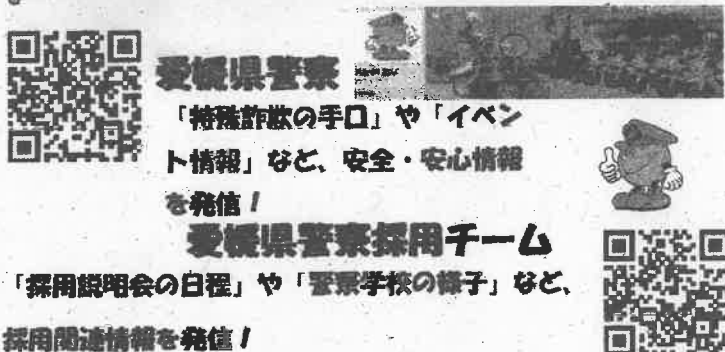 愛媛県警察
「特殊詐欺の手口」や「イベン
ト情報」など、安全・安心情報
を発信！
愛媛県警察採用チーム
「採用説明会の日程」や「警察学校の様子」など、
採用関連情報を発信！